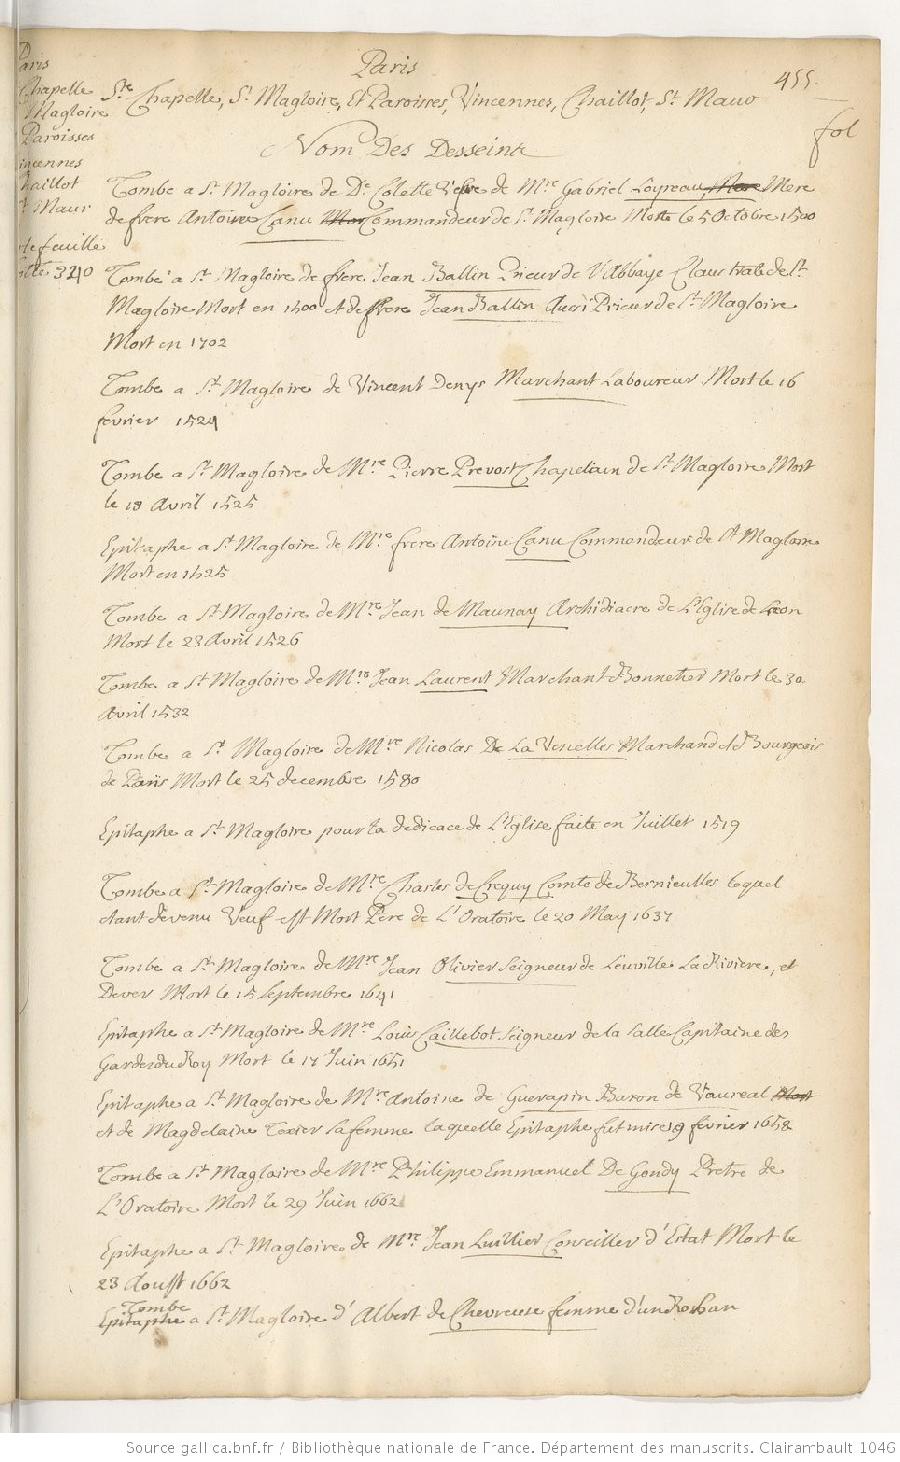 Paris
455.
Ste Chapelle, St Magloire, Et Paroisses, Vincennes, Chaillot, St Maur
fol
Nom Des Desseins
Paris
Chapelle
Magloire
Paroisses
Vincennes
Chaillot
St Maur
feuille
340
Tombe a St Magloire de De Colette vefve de Mre Gabriel Loyreau Mere
de frere Antoine Canu Commandeur de St Magloire Morte le 5 Octobre 1500
Tombe a St Magloire de frere Jean Ballin Prieur de l'Abbaye Claustrale de St
Magloire Mort en 1500 et de frere Jean Ballin Aussi Prieur de St Magloire
Mort en 1702
Tombe a St Magloire de Vincent Denys Marchant Laboureur Mort le 16
fevrier 1524
Tombe a St Magloire de Mre Pierre Prevost Chapelain de St Magloire Mort
le 18 Avril 1525
Epitaphe a St Magloire de Mre frere Antoine Canu Commandeur de St Magloire
Mort en 1525
Tombe a St Magloire de Mre Jean de Maunay Archidiacre de L'Eglise de Leon
Mort le 23 Avril 1526
Tombe a St Magloire de Mre Jean Laurent Marchant Bonnetier Mort le 30
Avril 1532
Tombe a St Magloire de Mre Nicolas De La Venelles Marchand et Bourgeois
de Paris Mort le 25 decembre 1580
Epitaphe a St Magloire pour la dedicace de L'Eglise faite en Juillet 1519
Tombe a St Magloire de Mre Charles de Crequy Comte de Bernieulles lequel
etant devenu Veuf est Mort Pere de L'Oratoire le 20 May 1637
Tombe a St Magloire de Mre Jean Olivier Seigneur de Leuville La Riviere, et
Dever Mort le 15 Septembre 1641
Epitaphe a St Magloire de Mre Louis Caillebot Seigneur de la Salle Capitaine des
Gardes du Roy Mort le 17 Juin 1651
Epitaphe a St Magloire de Mre Antoine de Guerapin Baron de Vaureal Mort
et de Magdelaine Texier sa femme laquelle Epitaphe fut mise 19 fevrier 1658
Tombe a St Magloire de Mre Philippe Emmanuel De Gondy Pretre de
L'Oratoire Mort le 29 Juin 1662
Epitaphe a St Magloire de Mre Jean Luillier Conseiller d'Estat Mort le
23 Aoust 1662
Tombe
Epitaphe a St Magloire d'Albert de Chevreuse femme d'un Rohan
Source gallica.bnf.fr / Bibliothèque nationale de France. Département des manuscrits. Clairambault 1046